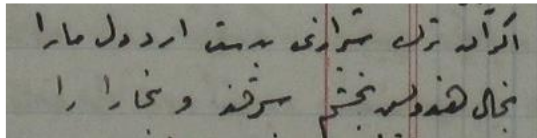 اگر آن ترک شیرازی بدست آرد دل ما را
بخال هندویش بخشم سمرقند و بخارا را